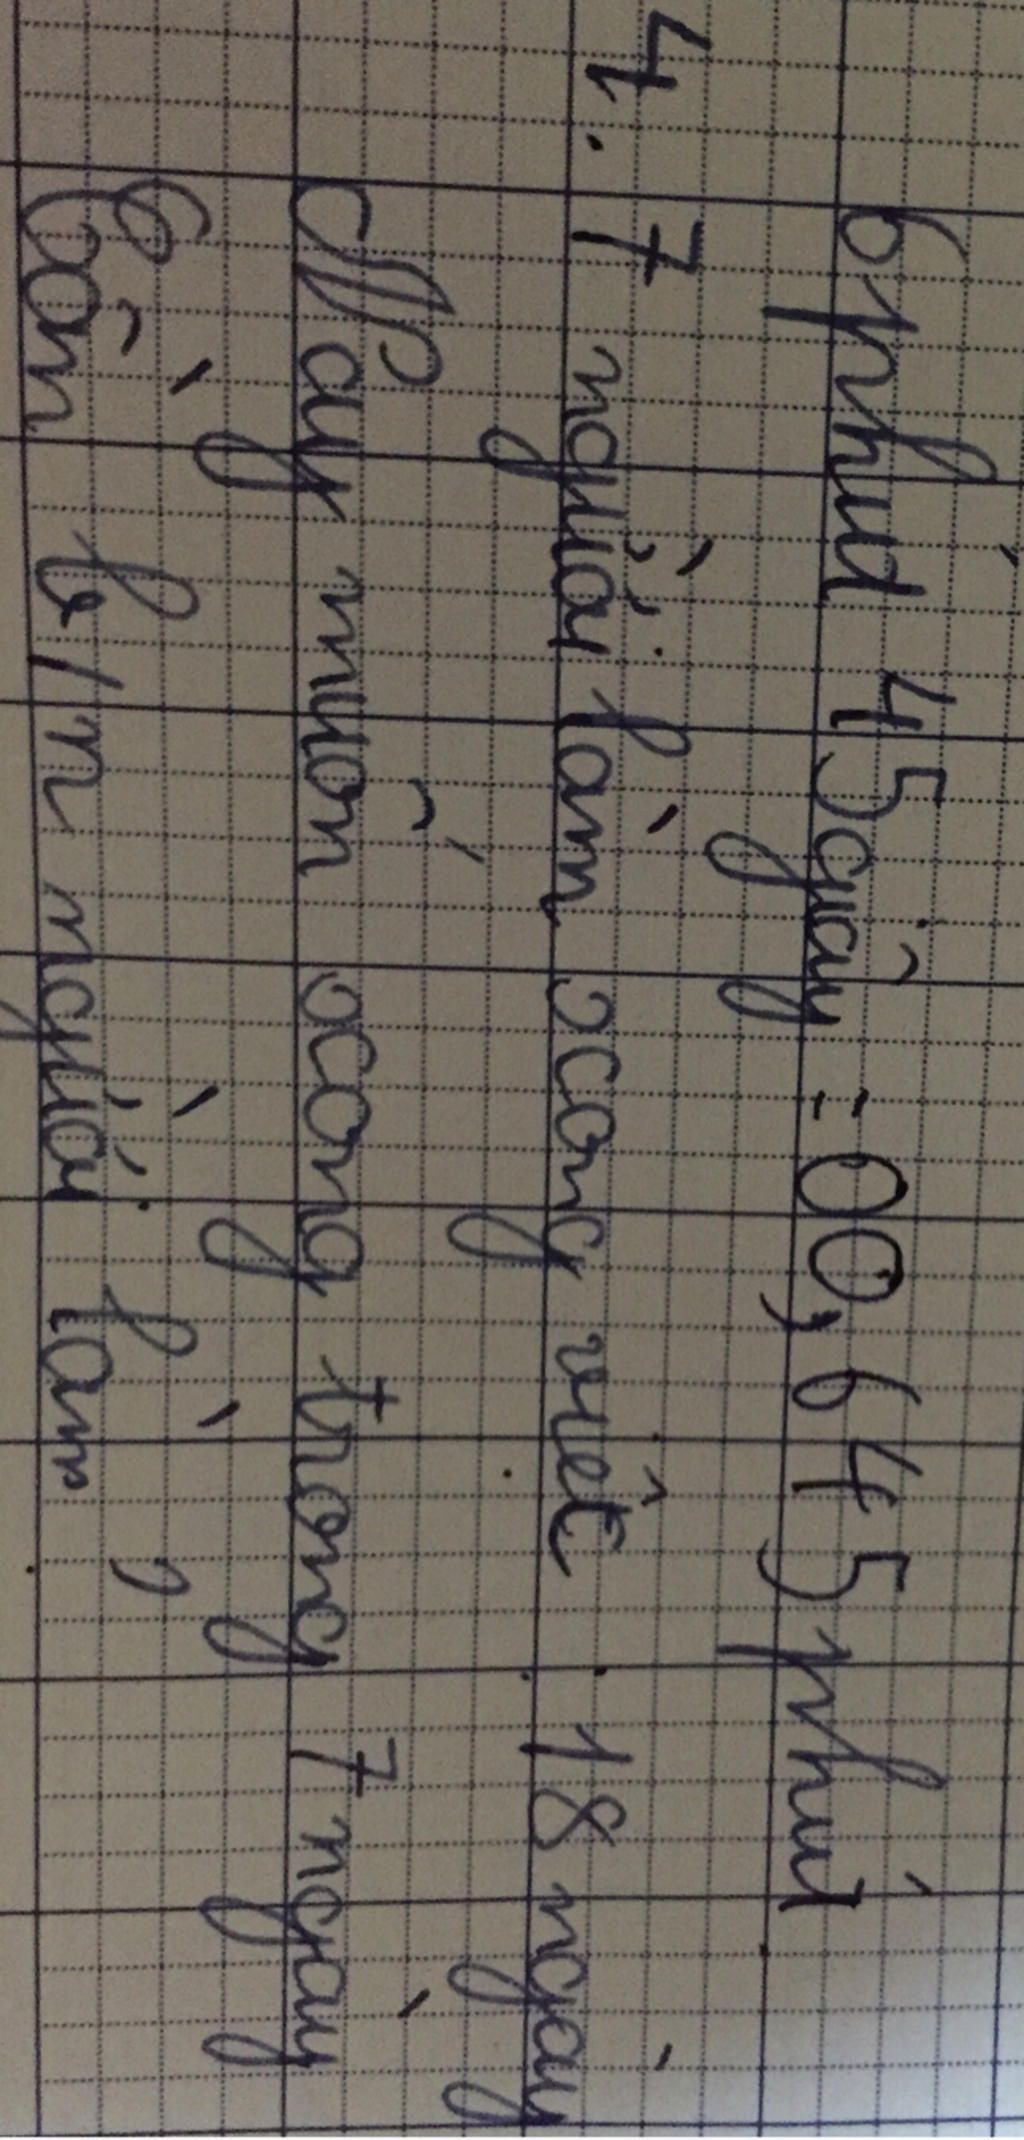 6 phút 45 giây = 00,645 phút
4. 7 người làm xong hết 18 ngày
Vậy muốn xong trong 7 ngày
Cần b/n người làm ?